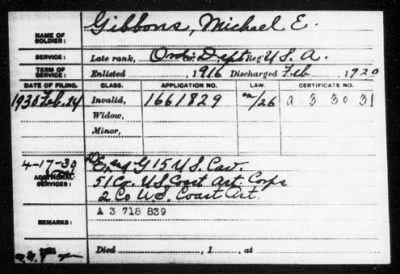 NAME OF SOLDIER: Gibbons, Michael E.
SERVICE: Late rank, Ord. Dept Reg U.S.A.
TERM OF SERVICE: Enlisted 1916 Discharged Feb, 1920
DATE OF FILING. CLASS. APPLICATION NO. LAW. CERTIFICATE NO.
1930 Feb. 24 Invalid, 1661829 /26 a 3 30 31
Widow,
Minor,
4-17-30 G 15 U.S. Cav.
ADDITIONAL SERVICES: 51 Co. U.S. Coast Art. Cops
2 Co U.S. Coast Art.
REMARKS: A 3 718 839
Died , 1 , at